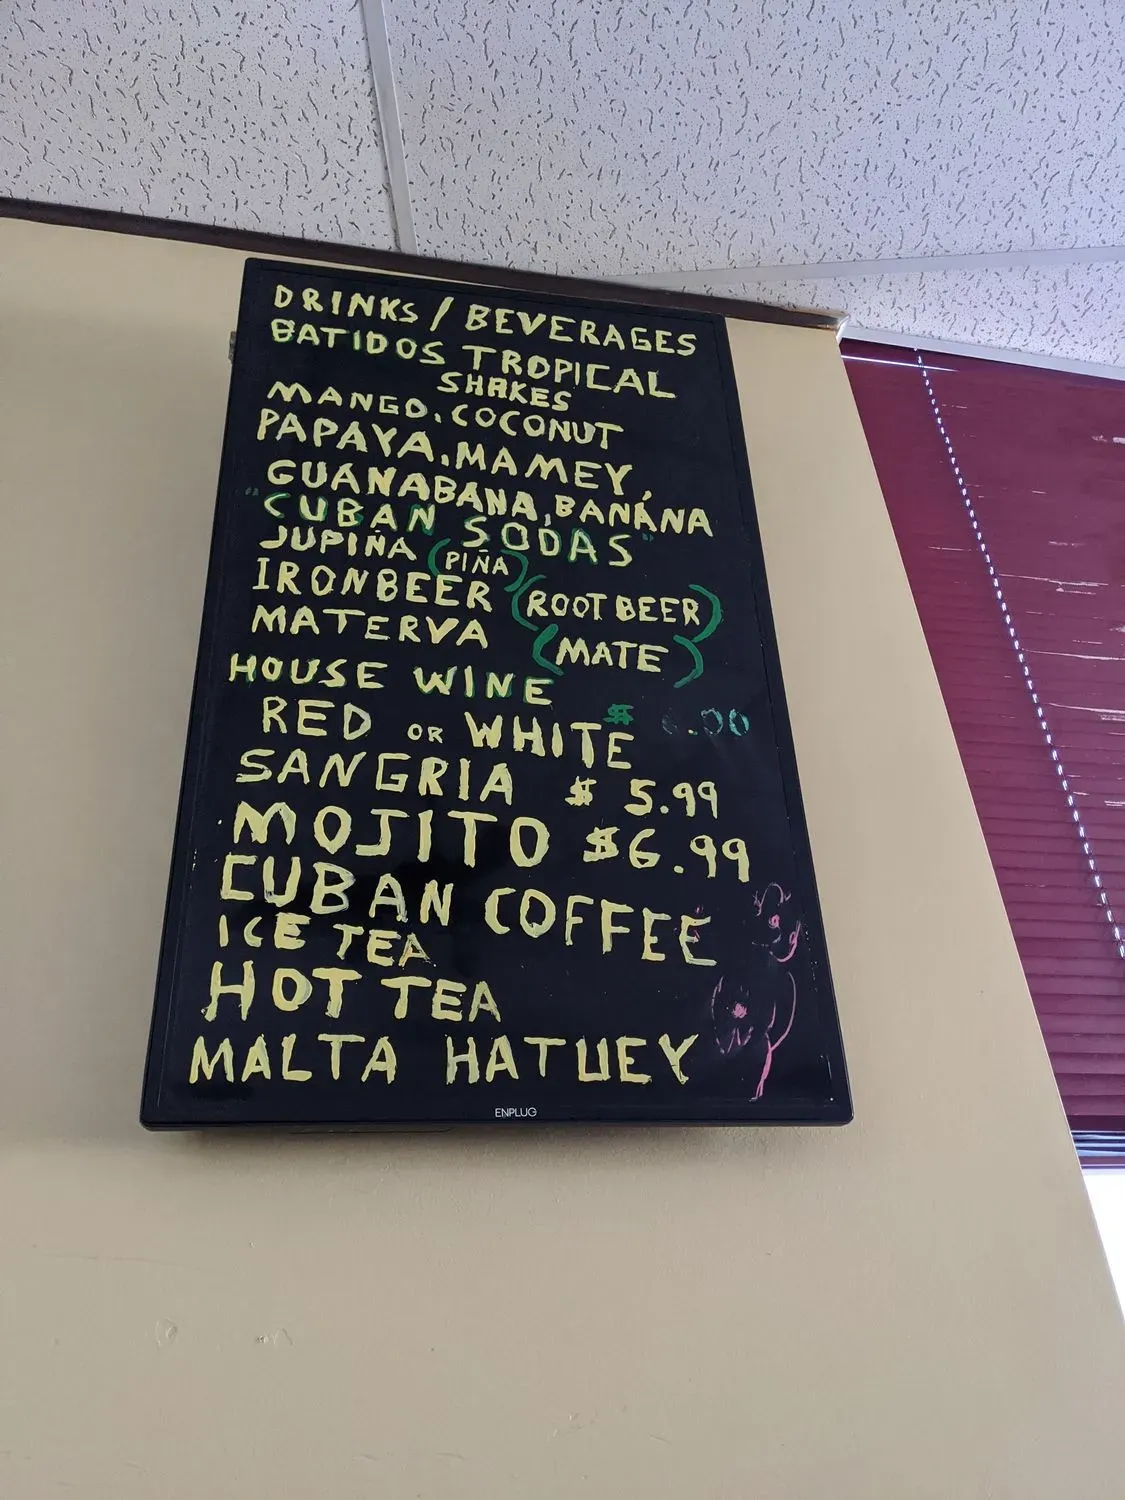 DRINKS / BEVERAGES
BATIDOS TROPICAL
SHAKES
MANGO, COCONUT
PAPAYA, MAMEY,
GUANABANA, BANANA
"CUBAN SODAS"
JUPIÑA (PIÑA)
IRONBEER (ROOT BEER)
MATERVA (MATE)
HOUSE WINE
RED OR WHITE $ 6.00
SANGRIA $ 5.99
MOJITO $6.99
CUBAN COFFEE
ICE TEA
HOT TEA
MALTA HATUEY
ENPLUG